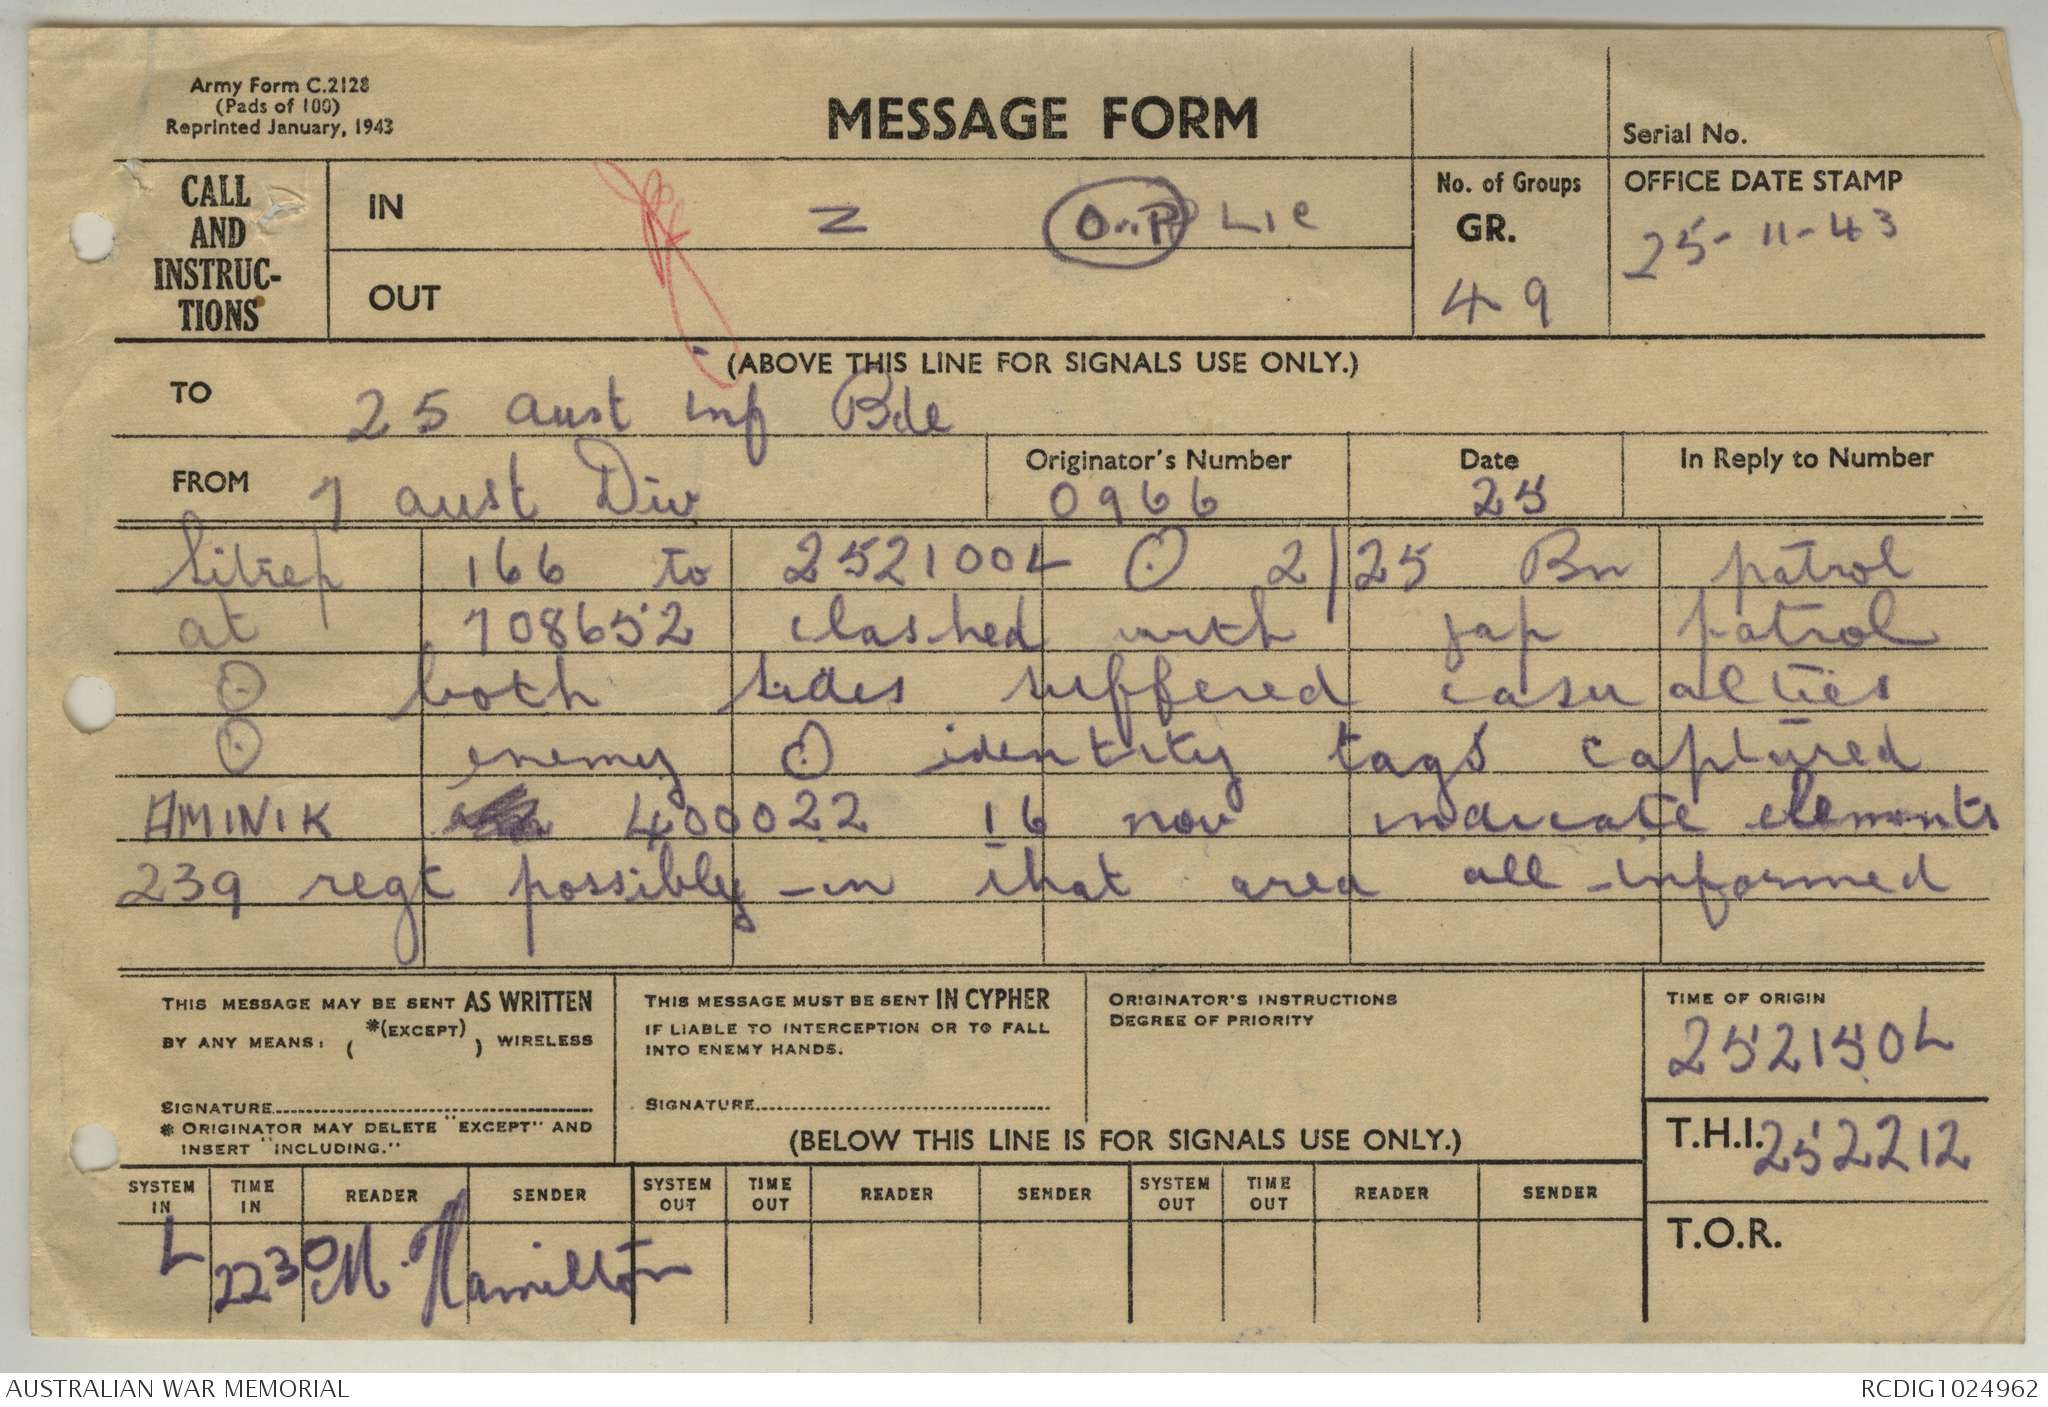 Army Form C.2128
(Pads of 100)
Reprinted January, 1943
MESSAGE FORM
Serial No.
CALL AND INSTRUC-TIONS
IN
Z LIC
OUT
No. of Groups
GR.
49
OFFICE DATE STAMP
25-11-43
(ABOVE THIS LINE FOR SIGNALS USE ONLY.)
TO 25 aust inf Bde
FROM 7 aust Div
Originator's Number 0966
Date 25
In Reply to Number
Sitrep 166 to 252100L ⊙ 2/25 Bn patrol
at 708652 clashed with jap patrol
⊙ both sides suffered casualties
⊙ enemy ⊙ identity tags captured
AMINIK 400022 16 nov indicate elements
239 regt possibly in that area all informed
THIS MESSAGE MAY BE SENT AS WRITTEN
BY ANY MEANS: ( *(EXCEPT) ) WIRELESS
SIGNATURE
* ORIGINATOR MAY DELETE "EXCEPT" AND
INSERT "INCLUDING."
THIS MESSAGE MUST BE SENT IN CYPHER
IF LIABLE TO INTERCEPTION OR TO FALL
INTO ENEMY HANDS.
SIGNATURE
ORIGINATOR'S INSTRUCTIONS
DEGREE OF PRIORITY
(BELOW THIS LINE IS FOR SIGNALS USE ONLY.)
TIME OF ORIGIN
252150L
T.H.I. 252212
T.O.R.
SYSTEM IN TIME IN READER SENDER SYSTEM OUT TIME OUT READER SENDER SYSTEM OUT TIME OUT READER SENDER
L 2230 M. Hamilton
AUSTRALIAN WAR MEMORIAL
RCDIG1024962